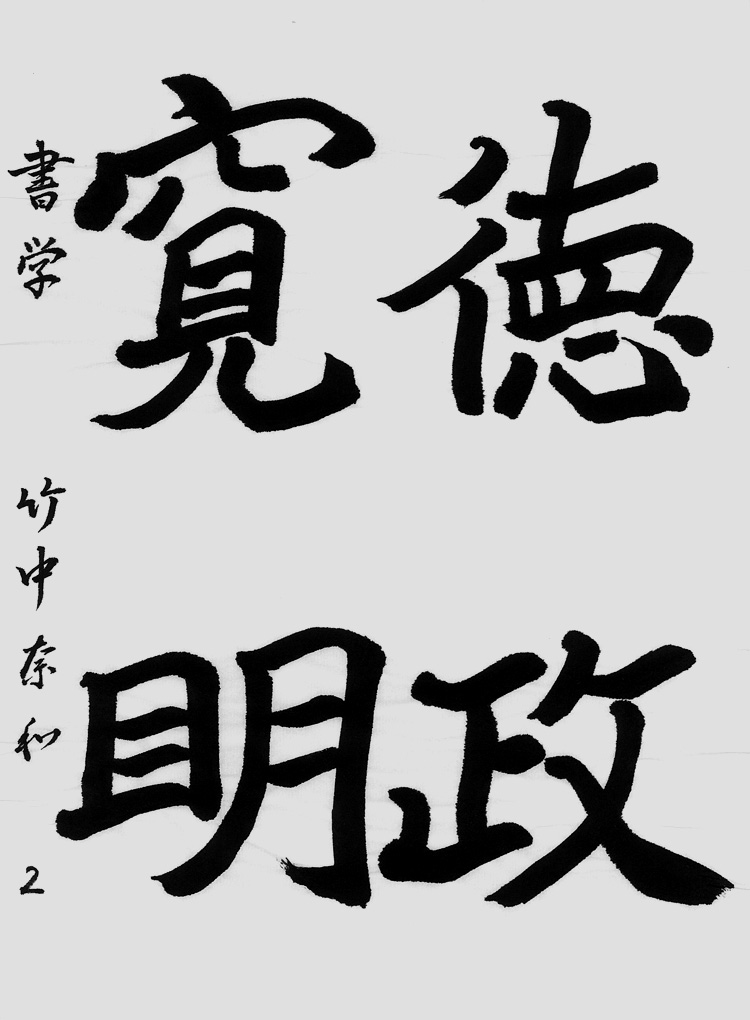 徳政
寛明
書学 竹中奈和 2